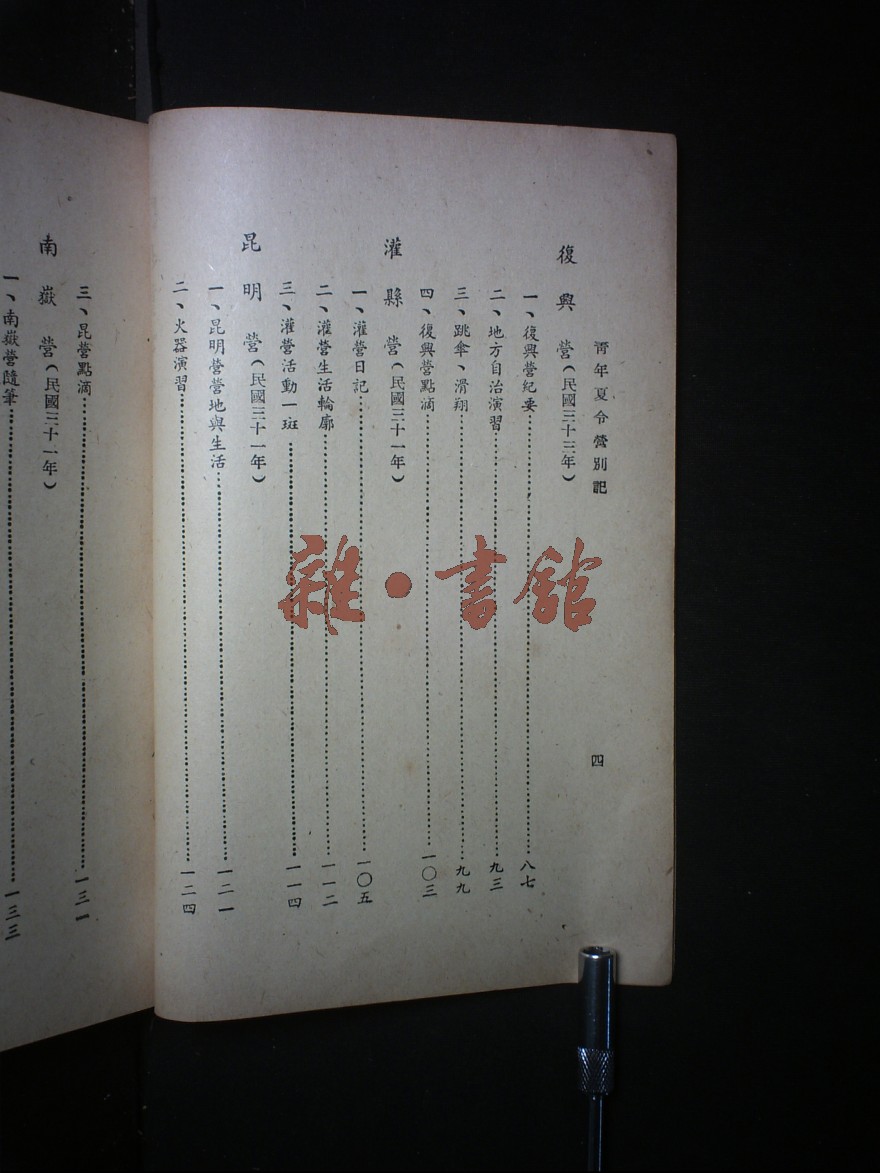 青年夏令營別記
四
復興營(民國三十三年)
一、復興營紀要……八七
二、地方自治演習……九三
三、跳傘、滑翔……九九
四、復興營點滴……一〇三
灌縣營(民國三十一年)
一、灌營日記……一〇五
二、灌營生活輪廓……一一二
三、灌營活動一斑……一一四
昆明營(民國三十一年)
一、昆明營營地與生活……一二一
二、火器演習……一二四
三、昆營點滴……一三一
南嶽營(民國三十一年)
一、南嶽營隨筆……一三三
雜·書館